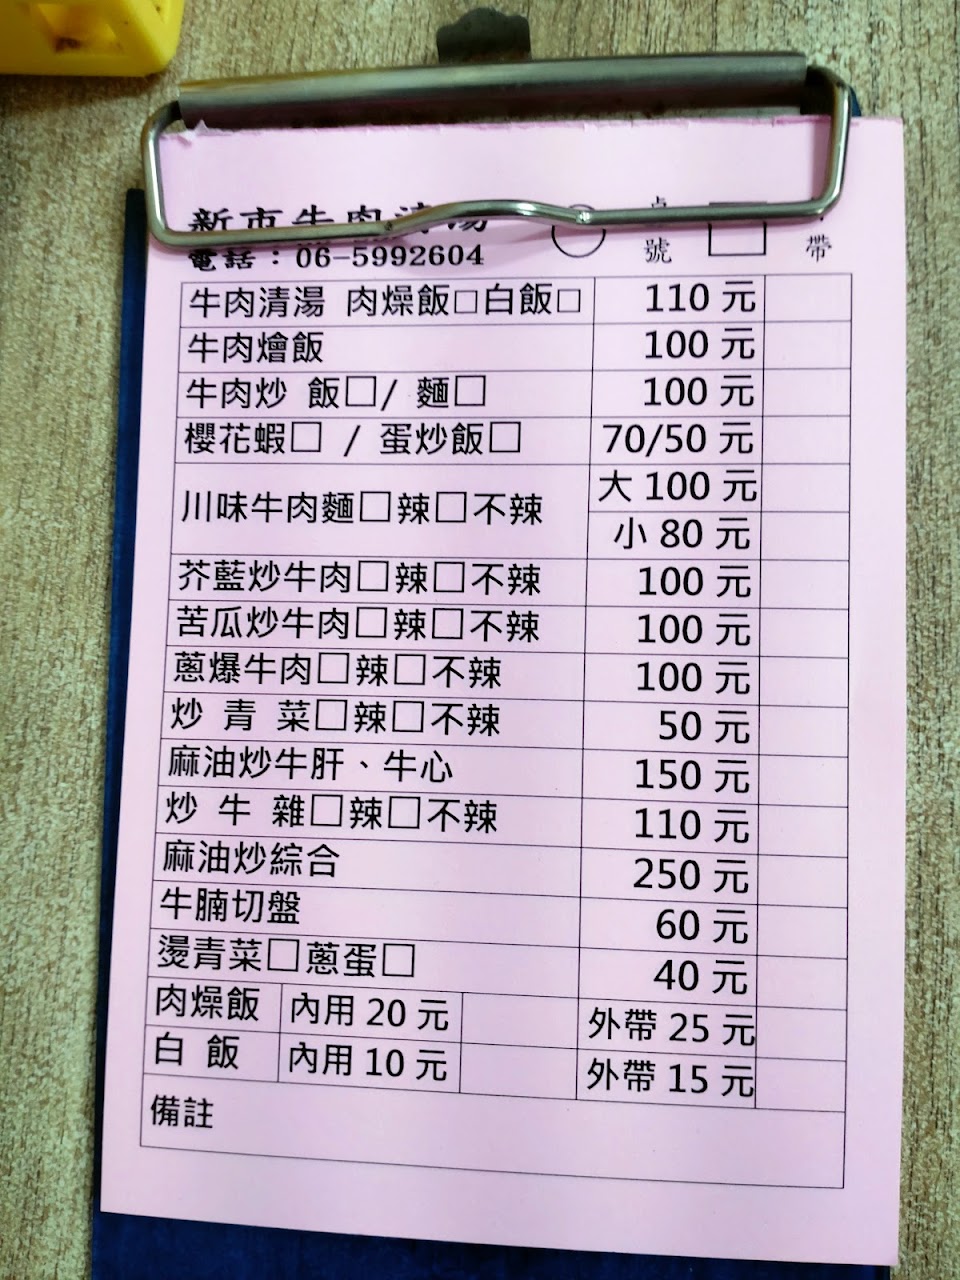 新市牛肉清湯
電話：06-5992604
號
帶
牛肉清湯 肉燥飯□白飯□ 110 元
牛肉燴飯 100 元
牛肉炒 飯□/ 麵□ 100 元
櫻花蝦□ / 蛋炒飯□ 70/50 元
川味牛肉麵□辣□不辣 大 100 元
小 80 元
芥藍炒牛肉□辣□不辣 100 元
苦瓜炒牛肉□辣□不辣 100 元
蔥爆牛肉□辣□不辣 100 元
炒 青 菜□辣□不辣 50 元
麻油炒牛肝、牛心 150 元
炒 牛 雜□辣□不辣 110 元
麻油炒綜合 250 元
牛腩切盤 60 元
燙青菜□蔥蛋□ 40 元
肉燥飯 內用 20 元 外帶 25 元
白 飯 內用 10 元 外帶 15 元
備註